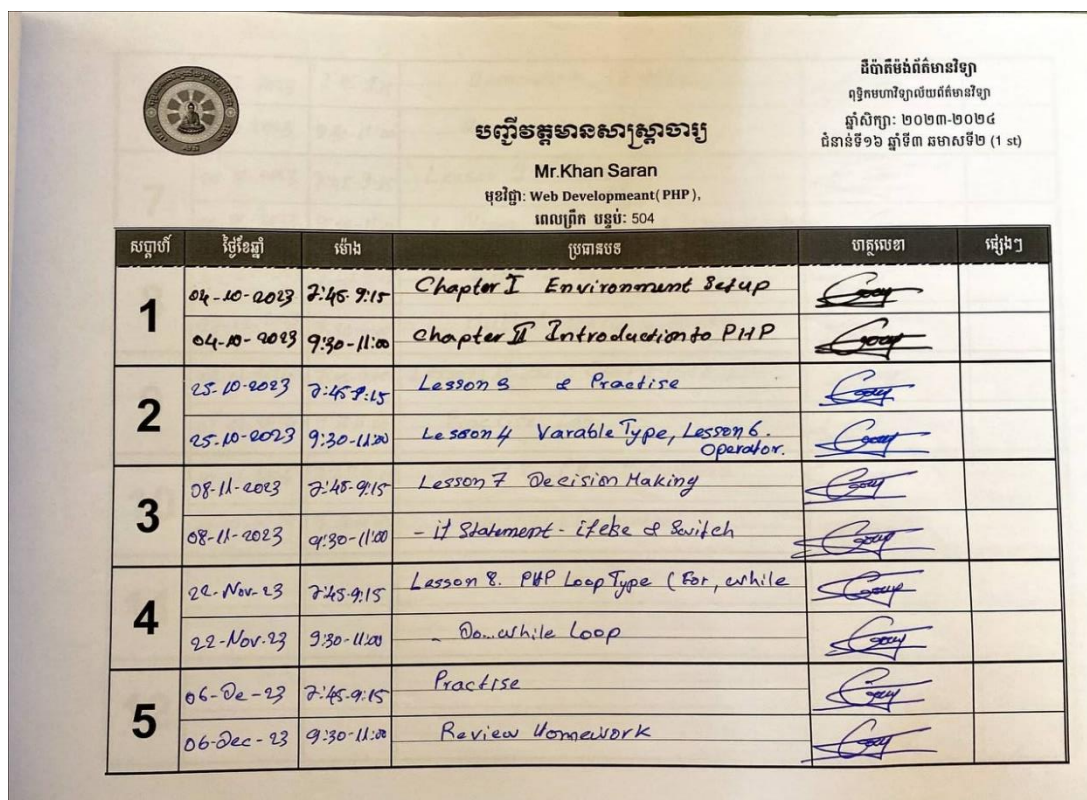 ដឺប៉ាតឺម៉ង់ព័ត៌មានវិទ្យា
ពុទ្ធិកមហាវិទ្យាល័យព័ត៌មានវិទ្យា
ឆ្នាំសិក្សា: ២០២៣-២០២៤
ជំនាន់ទី១៦ ឆ្នាំទី៣ ឆមាសទី២ (1 st)
បញ្ជីវត្តមានសាស្ត្រាចារ្យ
Mr.Khan Saran
មុខវិជ្ជា: Web Developmeant( PHP ),
ពេលព្រឹក បន្ទប់: 504
សប្តាហ៍ ថ្ងៃខែឆ្នាំ ម៉ោង ប្រធានបទ ហត្ថលេខា ផ្សេងៗ
1
04-10-2023 7:45-9:15 Chapter I Environment Setup
04-10-2023 9:30-11:00 Chapter II Introduction to PHP
2
25-10-2023 7:45-9:15 Lesson 3 & Practise
25-10-2023 9:30-11:00 Lesson 4 Varable Type, Lesson 6.
Operator.
3
08-11-2023 7:45-9:15 Lesson 7 Decision Making
08-11-2023 9:30-11:00 - if Statement - ifelse & Switch
4
22-Nov-23 7:45-9:15 Lesson 8. PHP Loop Type (For, while
22-Nov-23 9:30-11:00 - Do...while Loop
5
06-De-23 7:45-9:15 Practise
06-Dec-23 9:30-11:00 Review Homework